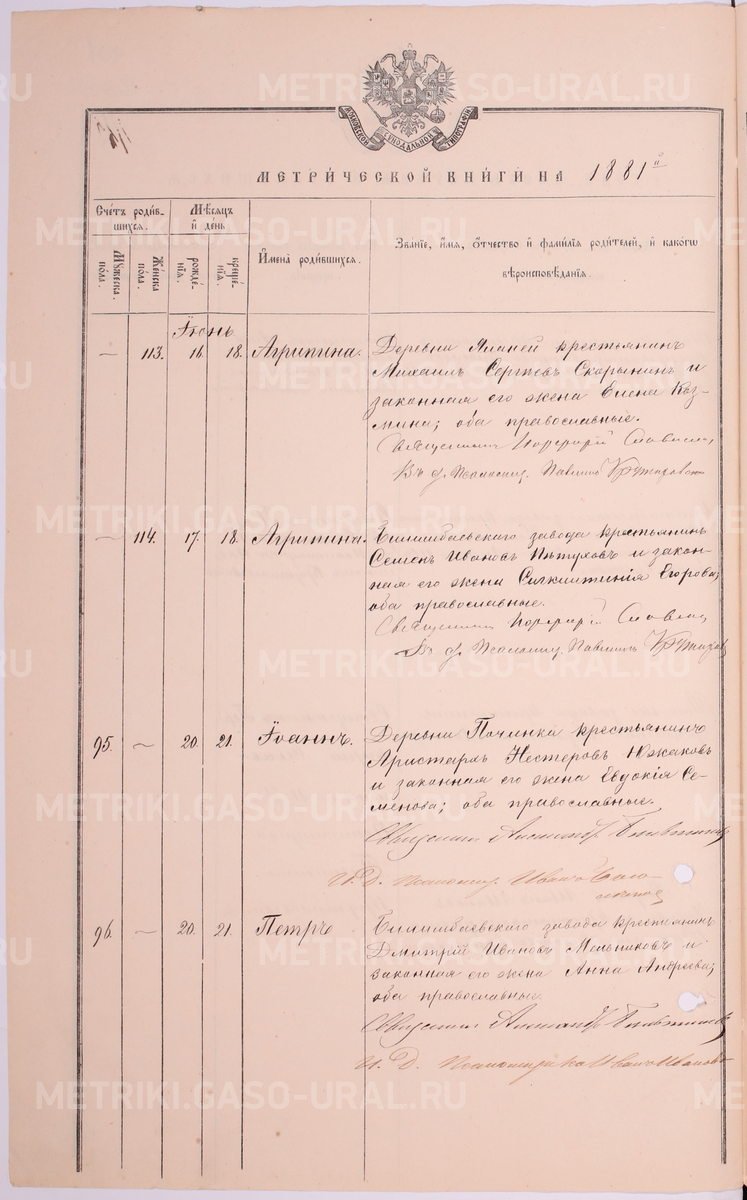 МОСКОВСКОЙ СѴНОДАЛЬНОЙ ТИПОГРАФІИ
МЕТРИ́ЧЕСКОЙ КНИ́ГИ НА 1881 й
Сче́тъ роди́в-
шихся.
Мѣсяцъ
и҆ де́нь
Мꙋ́жеска
по́ла.
Же́нска
по́ла.
рожде́-
нїя.
креще́-
нїя.
И҆мена̀ роди́вшихся.
Зва́нїе, и҆́мя, ѻ҆́тчество и҆ фами́лїя роди́телей, и҆ како́гѡ
вѣроисповѣ́данїя.
Іюнь
— 113. 16. 18. Агрипина. Деревни Яланей крестьянинъ
Михаилъ Сергѣевъ Скорынинъ и
законная его жена Елена Коз-
мина; оба православные.
Священникъ Порфирій Словцовъ,
В. д. Псаломщ. Павлинъ
— 114. 17. 18. Агрипина. Билимбаевскаго завода крестьянинъ
Семенъ Ивановъ Пѣтуховъ и закон-
ная его жена Силклитикія Егорова;
оба православные.
Священникъ Порфирій Словцовъ,
В. д. Псаломщ. Павлинъ
95. — 20. 21. Іоаннъ. Деревни Починка крестьянинъ
Аристархъ Нестеровъ Южаковъ
и законная его жена Евдокія Се-
менова; оба православные.
Священникъ Александръ
И. Д. Псаломщ. Иванъ
96. — 20. 21. Петръ Билимбаевскаго завода крестьянинъ
Дмитрій Ивановъ Мельниковъ и
законная его жена Анна Андреева;
оба православные.
Священникъ Александръ
И. Д. Псаломщика Иванъ
METRIKI.GASO-URAL.RU